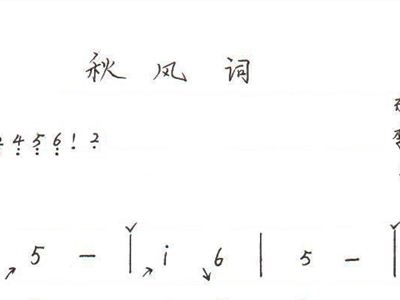 秋风词
4 5 6 1 2
5 - | i 6 | 5 - |